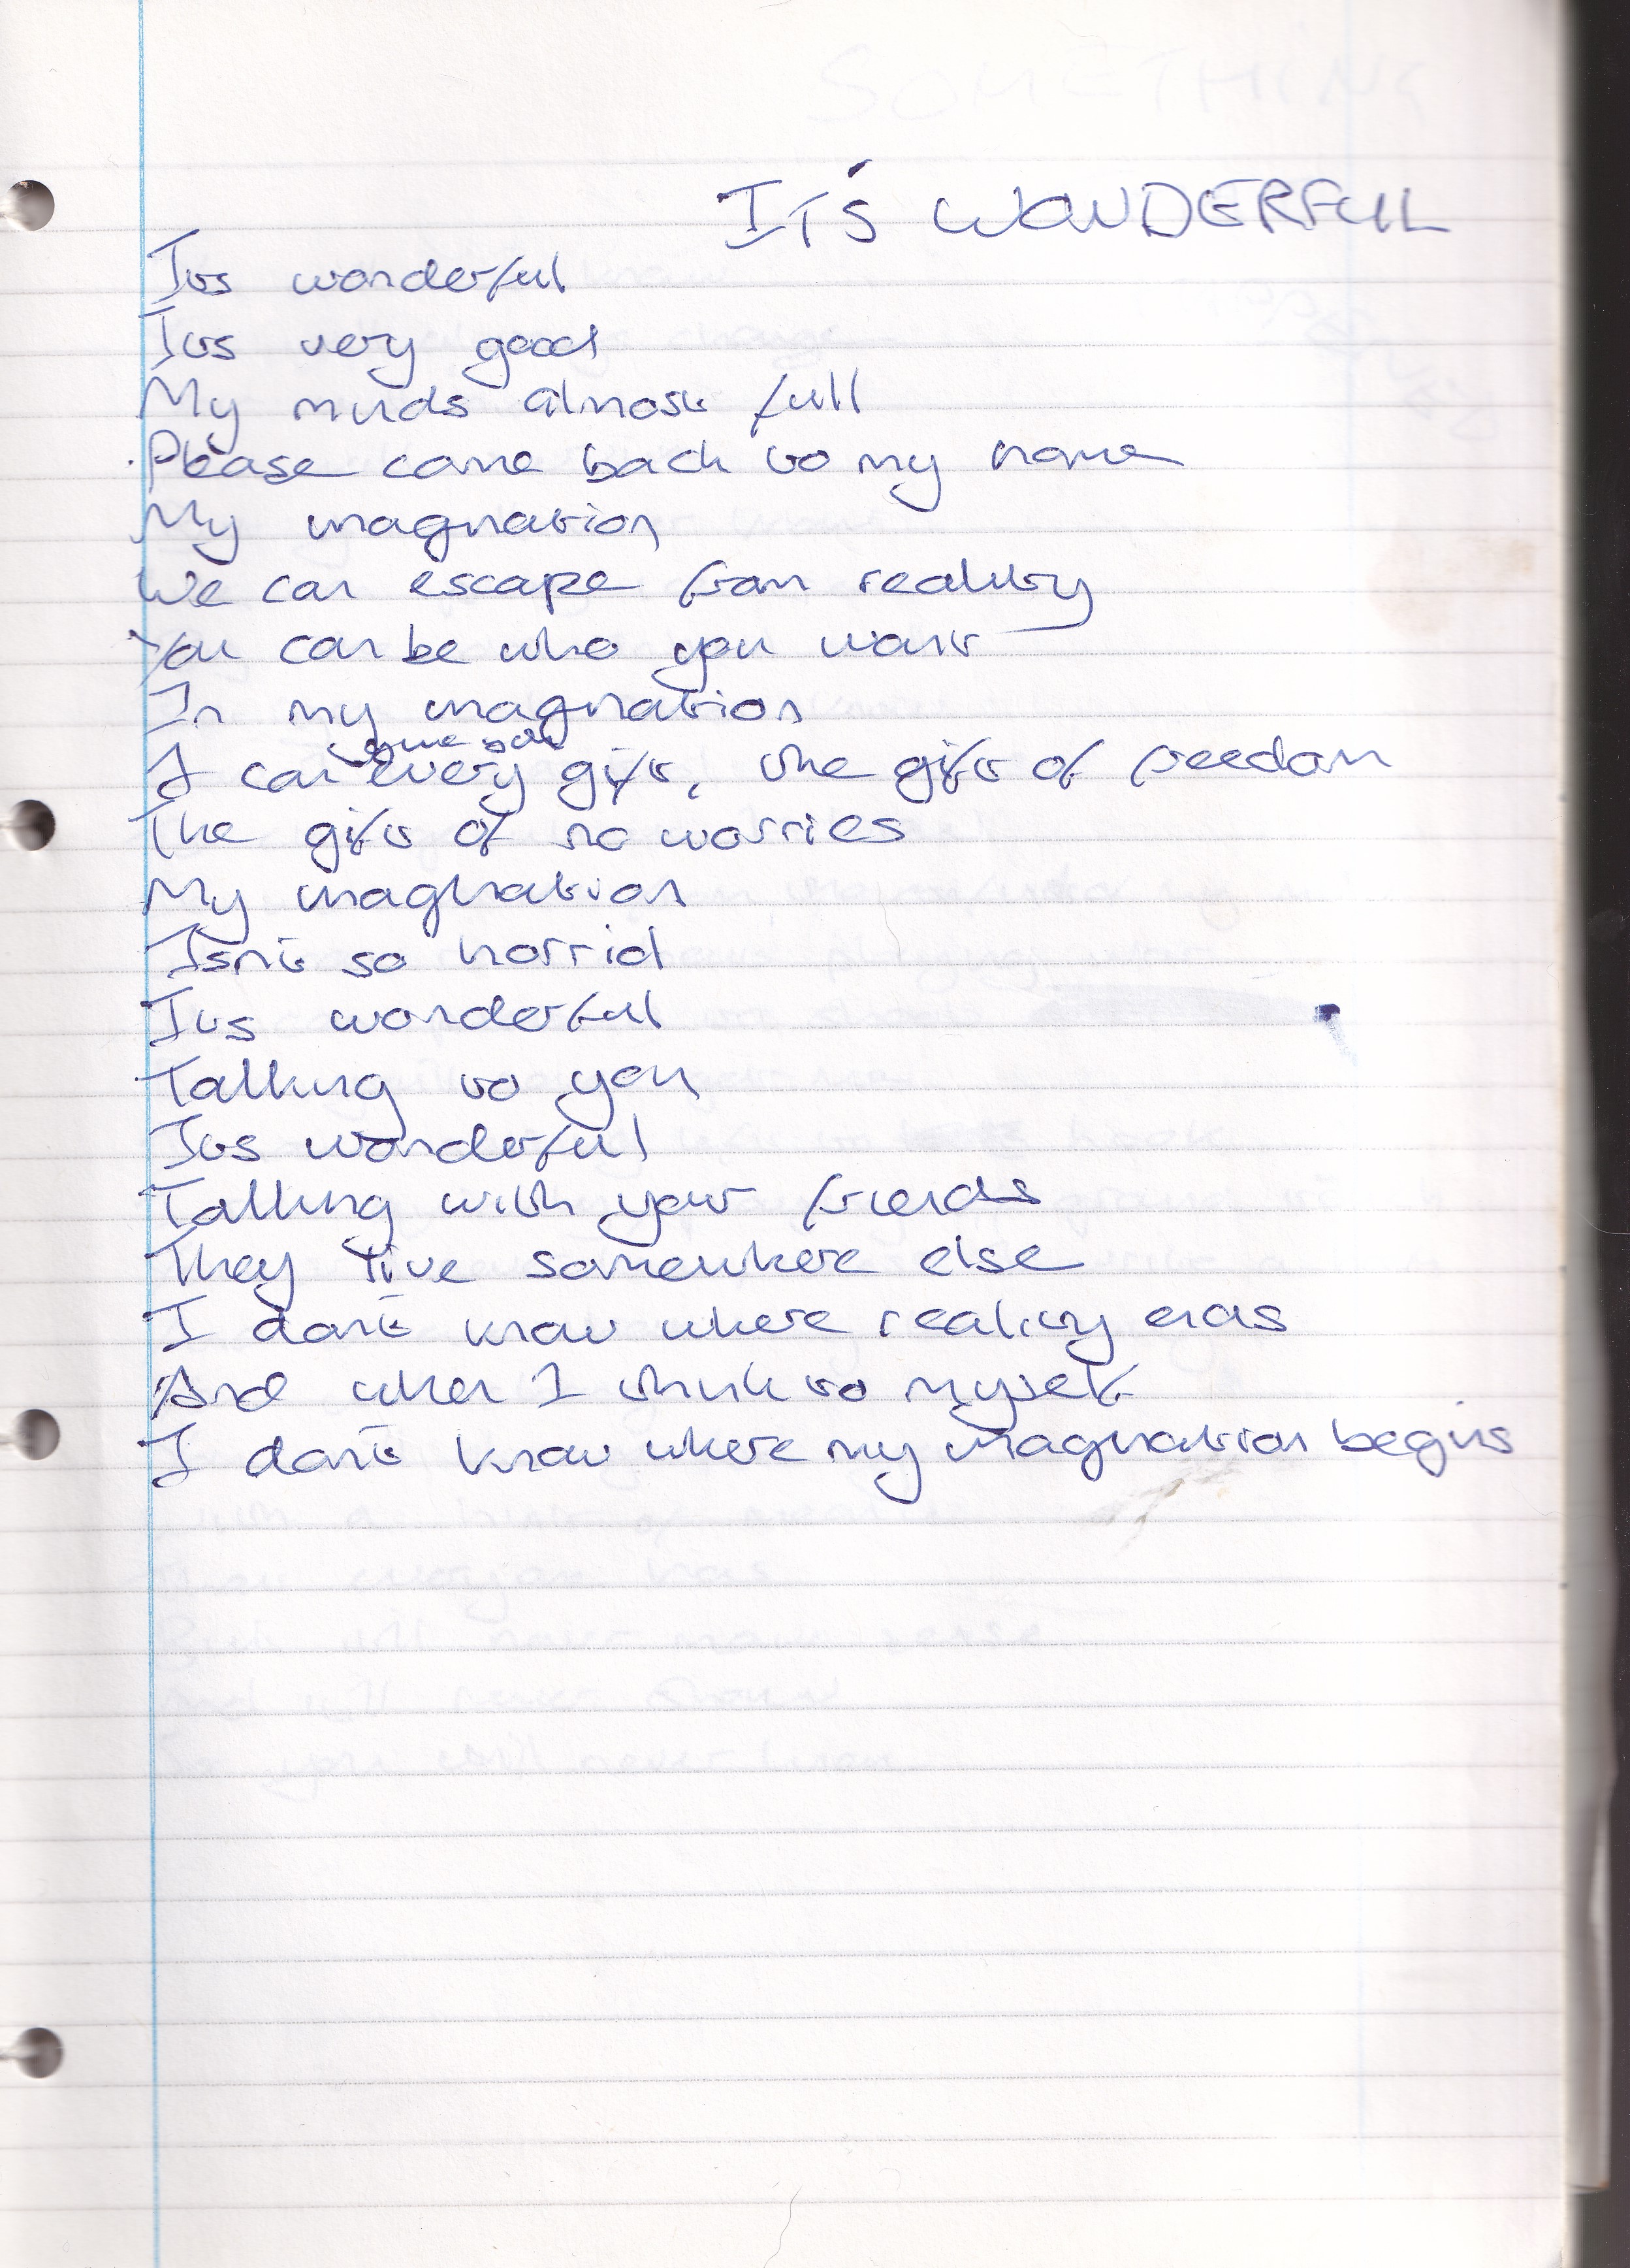 IT'S WONDERFUL
Its wonderful
Its very good
My minds almost full
Please come back to my home
My imagination
We can escape from reality
You can be who you want
In my imagination
I can give you every gift, the gift of freedom
The gift of no worries
My imagination
Isn't so horrid
Its wonderful
Talking to you
Its wonderful
Talking with your friends
They live somewhere else
I don't know where reality ends
And when I think to myself
I don't know where my imagination begins